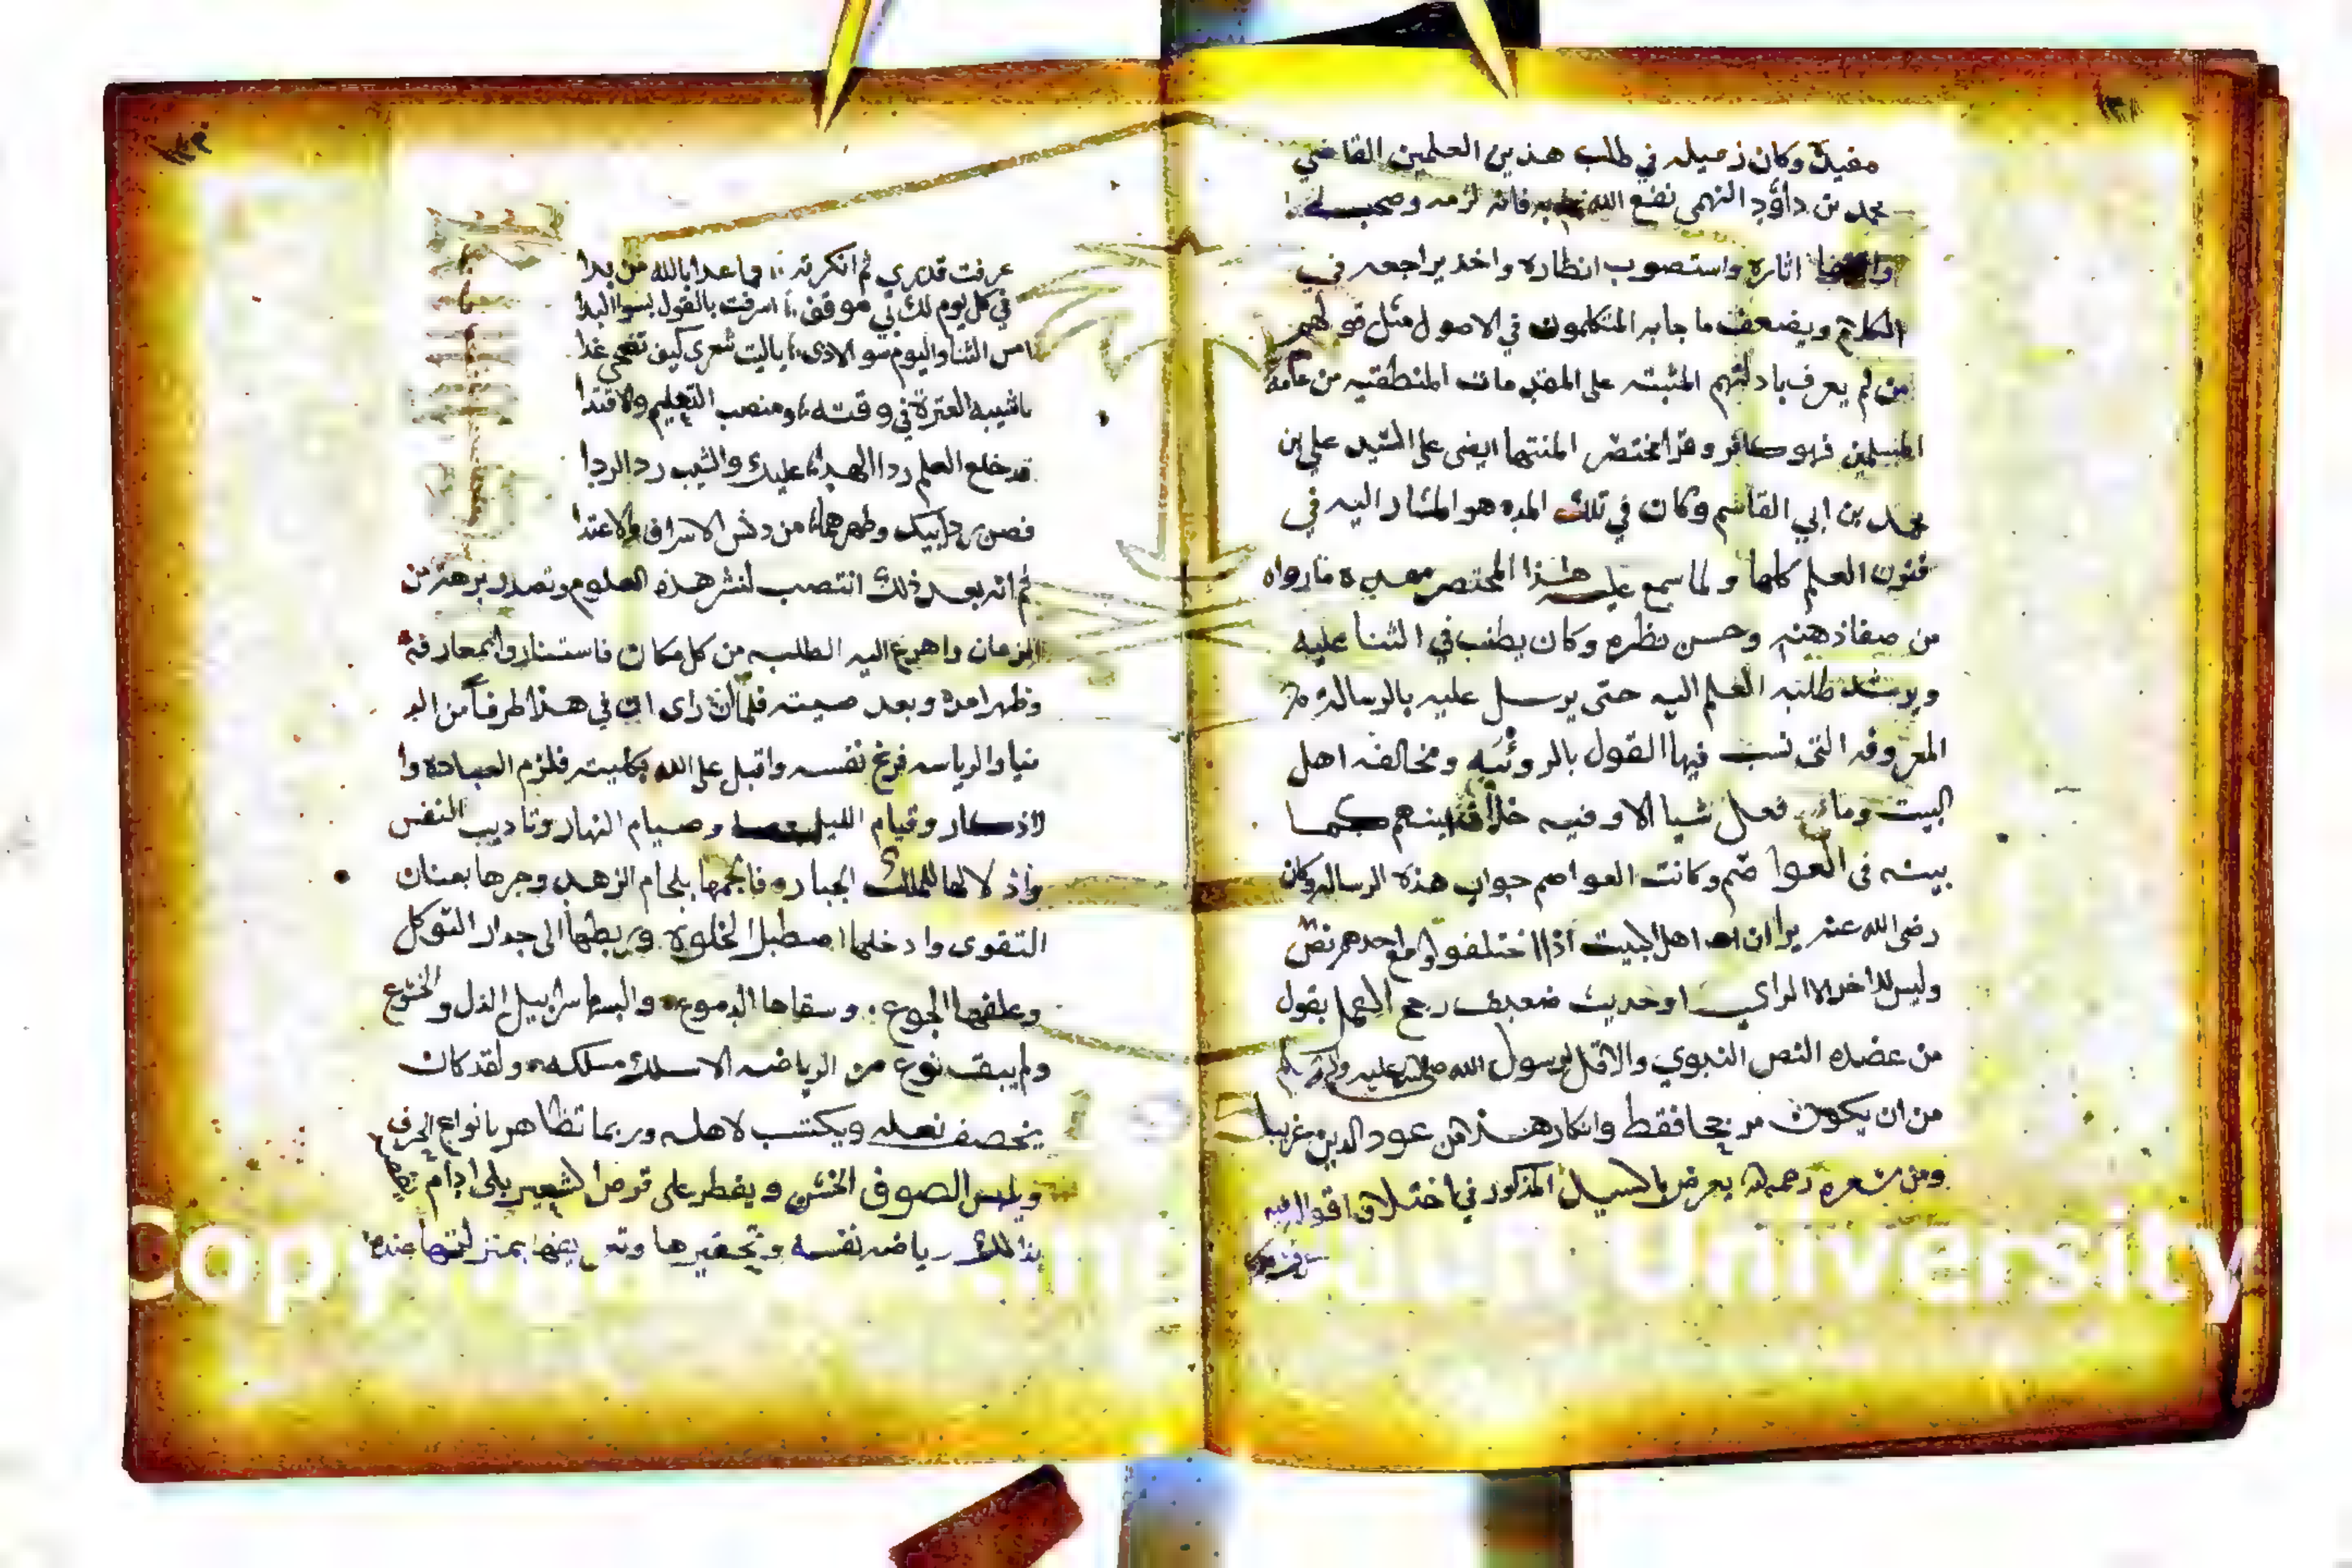 مفيدة وكان زميله في طلب هذين العلمين القاضي
محمد بن داؤد النهمي نفع الله به فانه لزمه وصحب
اثاره واستصوب انظاره واخذ يراجعه في
الكلام ويضعف ما جا به المتكلمون في الاصول مثل قولهم
من لم يعرف بادلتهم المثبته على المقدمات المنطقيه من عامة
المسلمين فهو كافر وقرا مختصر المنتها ايضى على السيد علي بن
محمد بن ابي القاسم وكان في تلك المده هو المشار اليه في
فنون العلم كلها ولما سمع عليه هذا المختصر ما رواه
من صفا ذهنه وحسن نظره وكان يطنب في الثنا عليه
ويرشد طلبه العلم اليه حتى يرسل عليه بالرسالة
المعروفه التى نسب فيها القول بالروئيه ومخالفه اهل
البيت وما فعل شيا الا وفيه خلاف بينهم كما
بينه فى العواصم وكانت العواصم جواب هذه الرساله وكان
رضى الله عنه يرا ان اهل البيت اذا اختلفوا ومع احدهم نص
وليس للاخر الا الراي او حديث ضعيف رجع الى العمل بقول
من عضده النص النبوي والاقل لرسول الله صلى الله عليه واله وسلم
من ان يكون مرجحا فقط وانكار هذا من عود الدين غريبا
ومن شعره رحمه الله يعرض بالسيد المذكور في اختلاف اقواله فيه
عرفت قدري ثم انكرته ∴ فما عدا بالله من بدا
في كل يوم لك بي موقف ∴ اسرفت بالقول بسوا البدا
امس الثنا واليوم سو الاذى ∴ ياليت شعري كيف تضحى غدا
ياشيبه العترة في وقته ∴ ومنصب التعليم والاقتدا
قد خلع العلم ردا الهدا ∴ عليك والشيب ردا الردا
فصن ردائيك وطهرهما ∴ من دنس الاسراف والاعتدا
ثم انه بعد ذلك انتصب لنشر هذه العلوم وتصدر برهة من
الزمان واهرع اليه الطلبه من كل مكان فاستناروا بمعارفه
وظهر امره وبعد صيته فلما ان راى ان في هذا طرفاً من الد
نيا والرياسه فرغ نفسه واقبل على الله بكليته فلزم العباده وا
لاذكار وقيام الليل وصيام النهار وتاديب النفس
واذلالها للملك الجبار وفالجمها بلجام الزهد وجرها بعنان
التقوى وادخلها اصطبل الخلوة وربطها الى جدار التوكل
وعلفها الجوع وسقاها الدموع والبسها سرابيل الذل والخشوع
ولم يبق نوع من الرياضه الا سلك مسلكه ولقد كان
يخصف نعله ويكتسب لاهله وربما تظاهر بانواع الحرف
ويلبس الصوف الخشن ويفطر على قرص الشعير بلى ادام
بذالك رياضه نفسه وتحقيرها وتعريفها بمنزلتها
Copyright © King Saud University